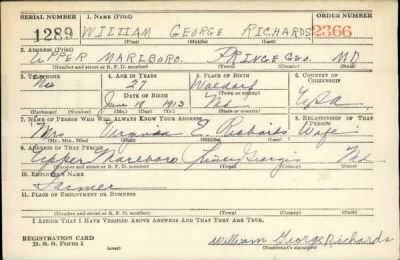 SERIAL NUMBER 1. NAME (Print) ORDER NUMBER
1289 WILLIAM GEORGE RICHARDS 2366
(First) (Middle) (Last)
2. ADDRESS (Print)
UPPER MARLBORO. PRINCE GEO. MD
(Number and street or R. F. D. number) (Town) (County) (State)
3. TELEPHONE 4. AGE IN YEARS 5. PLACE OF BIRTH 6. COUNTRY OF CITIZENSHIP
No 27 Waldorf
DATE OF BIRTH (Town or county)
June 18 1913 Md USA
(Exchange) (Number) (Mo.) (Day) (Yr.) (State or country)
7. NAME OF PERSON WHO WILL ALWAYS KNOW YOUR ADDRESS 8. RELATIONSHIP OF THAT PERSON
Mrs. E. Richards Wife
(Mr., Mrs., Miss) (First) (Middle) (Last)
9. ADDRESS OF THAT PERSON
Upper Marlboro Prince Georges Md.
(Number and street or R. F. D. number) (Town) (County) (State)
10. EMPLOYER'S NAME
Farmer
11. PLACE OF EMPLOYMENT OR BUSINESS
(Number and street or R. F. D. number) (Town) (County) (State)
I AFFIRM THAT I HAVE VERIFIED ABOVE ANSWERS AND THAT THEY ARE TRUE.
REGISTRATION CARD
D. S. S. Form 1 (over) William George Richards
(Registrant's signature)